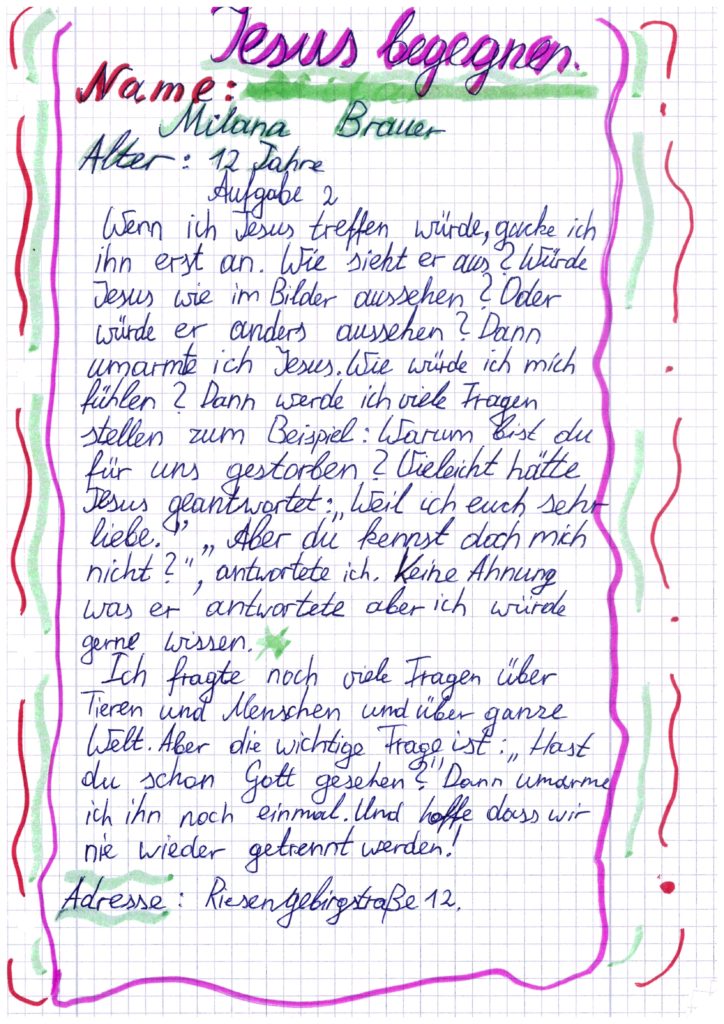 Jesus begegnen.
Name:
Milana Brauer
Alter: 12 Jahre
Aufgabe 2
Wenn ich Jesus treffen würde, gucke ich
ihn erst an. Wie sieht er aus? Würde
Jesus wie im Bilder aussehen? Oder
würde er anders aussehen? Dann
umarmte ich Jesus. Wie würde ich mich
fühlen? Dann werde ich viele Fragen
stellen zum Beispiel: Warum bist du
für uns gestorben? Vieleicht hätte
Jesus geantwortet: „Weil ich euch sehr
liebe." „Aber du kennst doch mich
nicht?", antwortete ich. Keine Ahnung
was er antwortete aber ich würde
gerne wissen.
Ich fragte noch viele Fragen über
Tieren und Menschen und über ganze
Welt. Aber die wichtige Frage ist: „Hast
du schon Gott gesehen?" Dann umarme
ich ihn noch einmal. Und hoffe dass wir
nie wieder getrennt werden!
Adresse: Riesengebirgstraße 12.